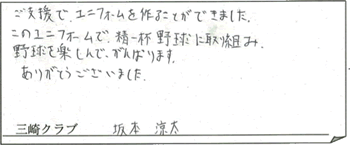 ご支援で、ユニフォームを作ることができました。
このユニフォームで、精一杯野球に取り組み、
野球を楽しんで、がんばります。
ありがとうございました。
三崎クラブ 坂本 涼太